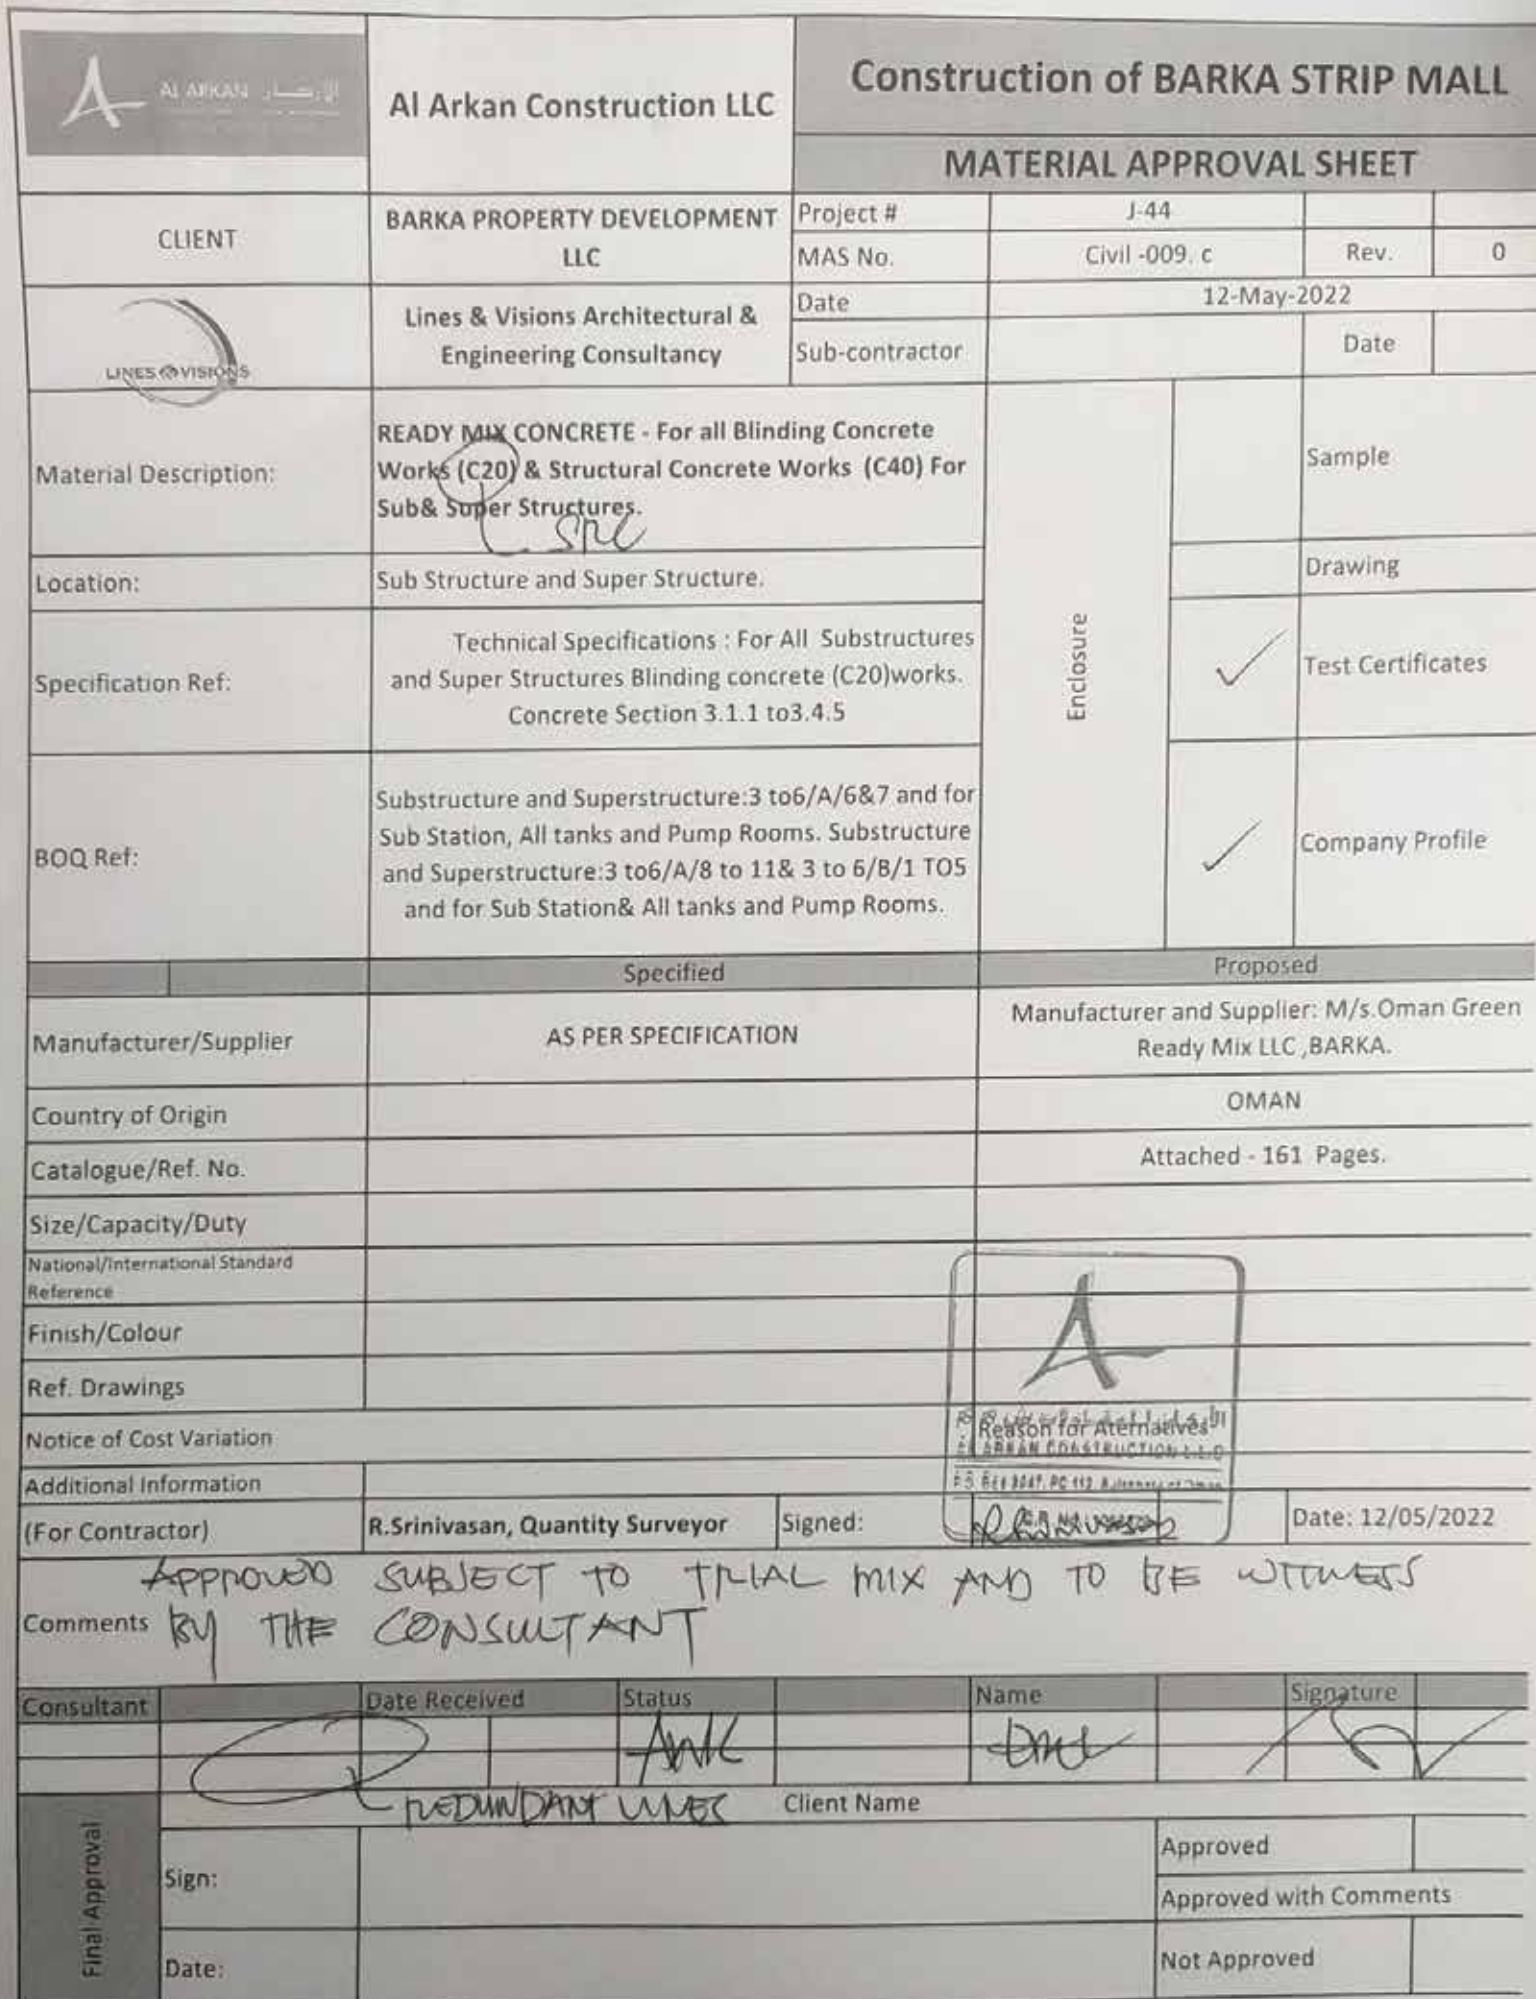 AL ARKAN
Al Arkan Construction LLC
Construction of BARKA STRIP MALL
MATERIAL APPROVAL SHEET
CLIENT
BARKA PROPERTY DEVELOPMENT
LLC
Project #
J-44
MAS No.
Civil -009. c
Rev.
0
LINES VISIONS
Lines & Visions Architectural &
Engineering Consultancy
Date
12-May-2022
Sub-contractor
Date
Material Description:
READY MIX CONCRETE - For all Blinding Concrete
Works (C20) & Structural Concrete Works (C40) For
Sub& Super Structures.
SRC
Enclosure
Sample
Location:
Sub Structure and Super Structure.
Drawing
Specification Ref:
Technical Specifications : For All Substructures
and Super Structures Blinding concrete (C20)works.
Concrete Section 3.1.1 to3.4.5
Test Certificates
BOQ Ref:
Substructure and Superstructure:3 to6/A/6&7 and for
Sub Station, All tanks and Pump Rooms. Substructure
and Superstructure:3 to6/A/8 to 11& 3 to 6/B/1 TO5
and for Sub Station& All tanks and Pump Rooms.
Company Profile
Specified
Proposed
Manufacturer/Supplier
AS PER SPECIFICATION
Manufacturer and Supplier: M/s.Oman Green
Ready Mix LLC ,BARKA.
Country of Origin
OMAN
Catalogue/Ref. No.
Attached - 161 Pages.
Size/Capacity/Duty
National/International Standard
Reference
Finish/Colour
Ref. Drawings
Notice of Cost Variation
Reason for Aternatives
AL ARKAN CONSTRUCTION L.L.C
Additional Information
(For Contractor)
R.Srinivasan, Quantity Surveyor
Signed:
Date: 12/05/2022
APPROVED SUBJECT TO TRIAL MIX AND TO BE WITNESS
Comments
BY THE CONSULTANT
Consultant
Date Received
Status
Name
Signature
AWC
REDUNDANT LINES
Client Name
Final Approval
Sign:
Approved
Approved with Comments
Date:
Not Approved